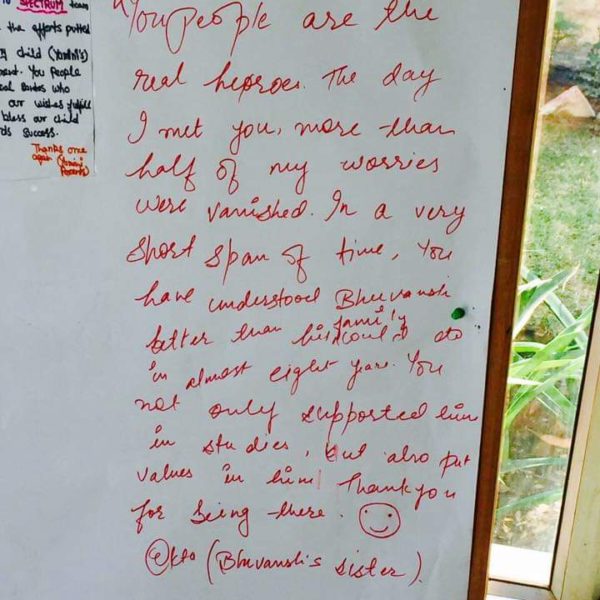 to SPECTRUM team
the efforts putted
child (Yamini's)
You People
who
our wishes fulfill
bless our child
success.
Thanks once
again (Yamini
Parents)
"You people are the
real heroes. The day
I met you, more than
half of my worries
were vanished. In a very
short span of time, You
have understood Bhuvansh
better than his family
could do
in almost eight years. You
not only supported him
in studies, but also put
values in him! Thankyou
for being there.
Ekta (Bhuvansh's sister).